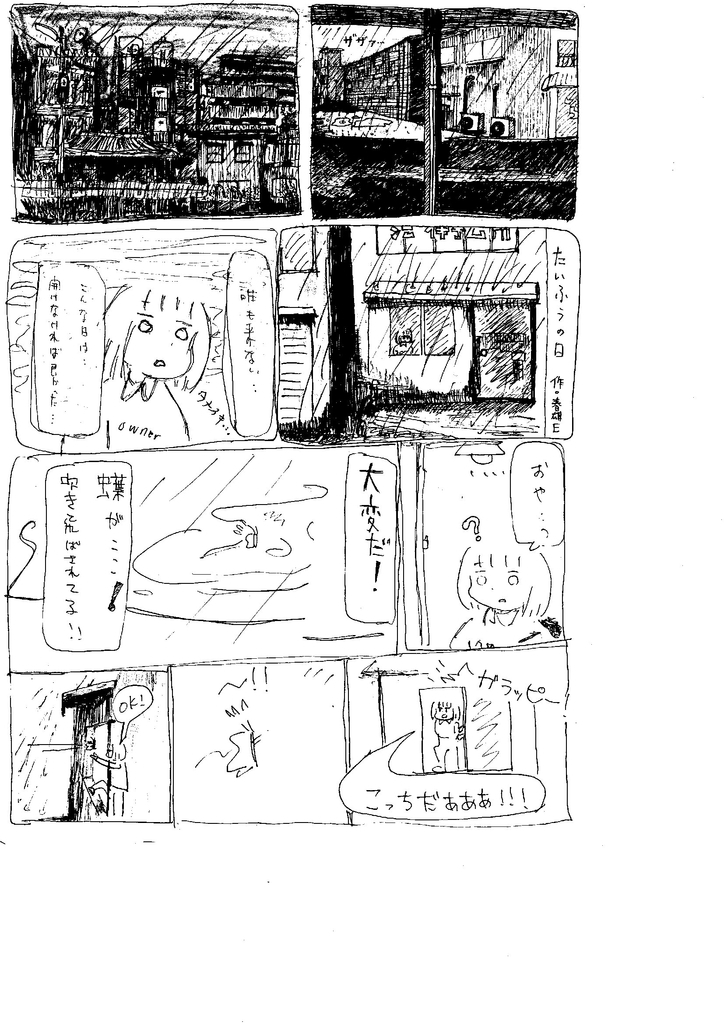 ザザァー
たいふうの日
作・春雄日
誰も来ない…
今大うき…
こんな日は
開けなければ良かった…
owner
おや…っ
?
大変だ!
蝶がここ!
吹き飛ばされてる!!
ガラッピー!
こっちだぁぁぁ!!!
〜!!
OK!